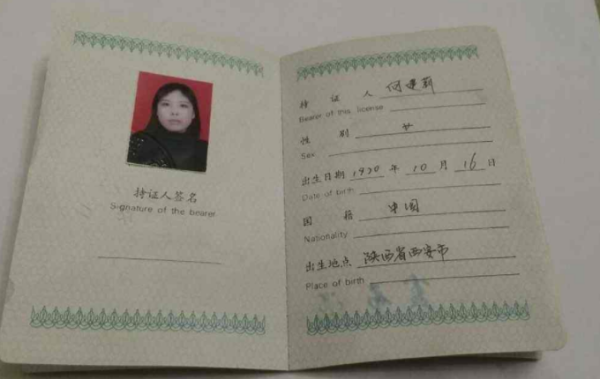 持证人签名
Signature of the bearer
持证人 何
Bearer of this license
性别 女
Sex
出生日期 1970 年 10 月 16 日
Date of birth
国籍 中国
Nationality
出生地点 陕西省西安市
Place of birth